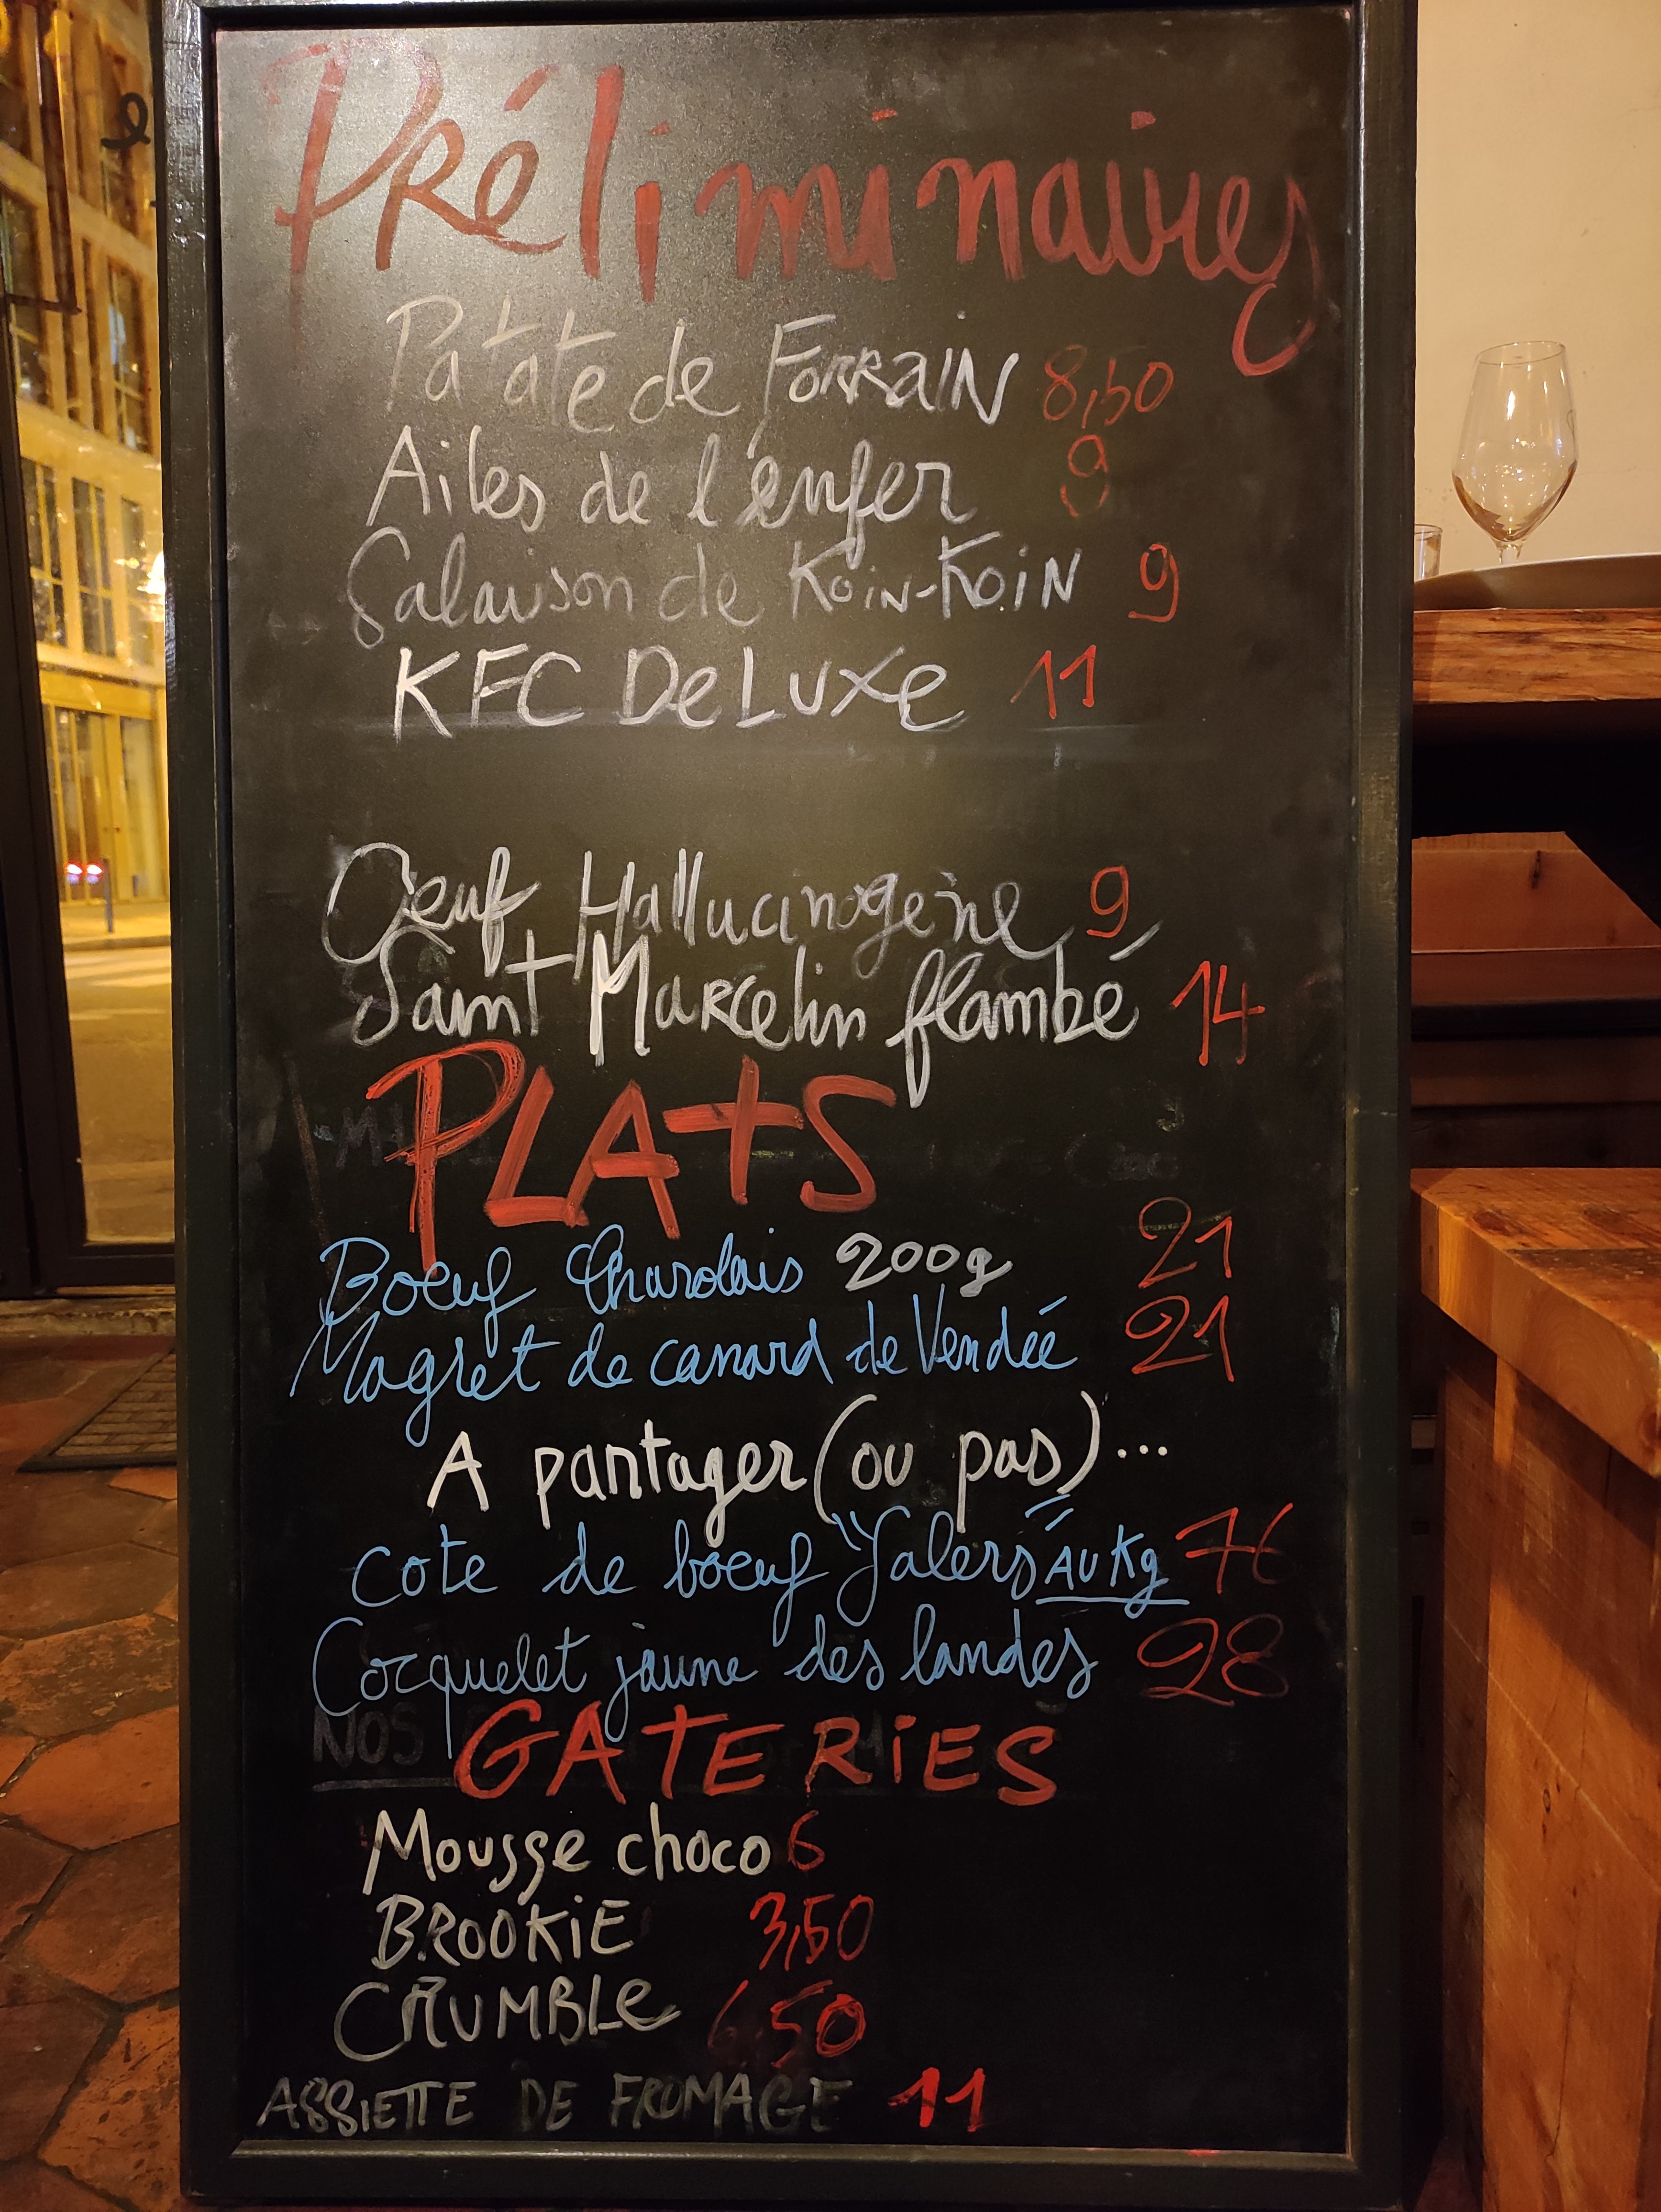 Préliminaires
Patate de Forrain 8,50
Ailes de l'enfer 9
Salaison de Koin-Koin 9
KFC DeLuxe 11
Oeuf Hallucinogène 9
Saint Marcelin flambé 14
PLATS
Boeuf Charolais 200g 21
Magret de canard de Vendée 21
A partager (ou pas)...
cote de boeuf "Salers" AU Kg 76
Cocquelet jaune des landes 28
NOS
GATERIES
Mousse choco 6
BROOKIE 3,50
CRUMBLe 6,50
ASSIETTE DE FROMAGE 11